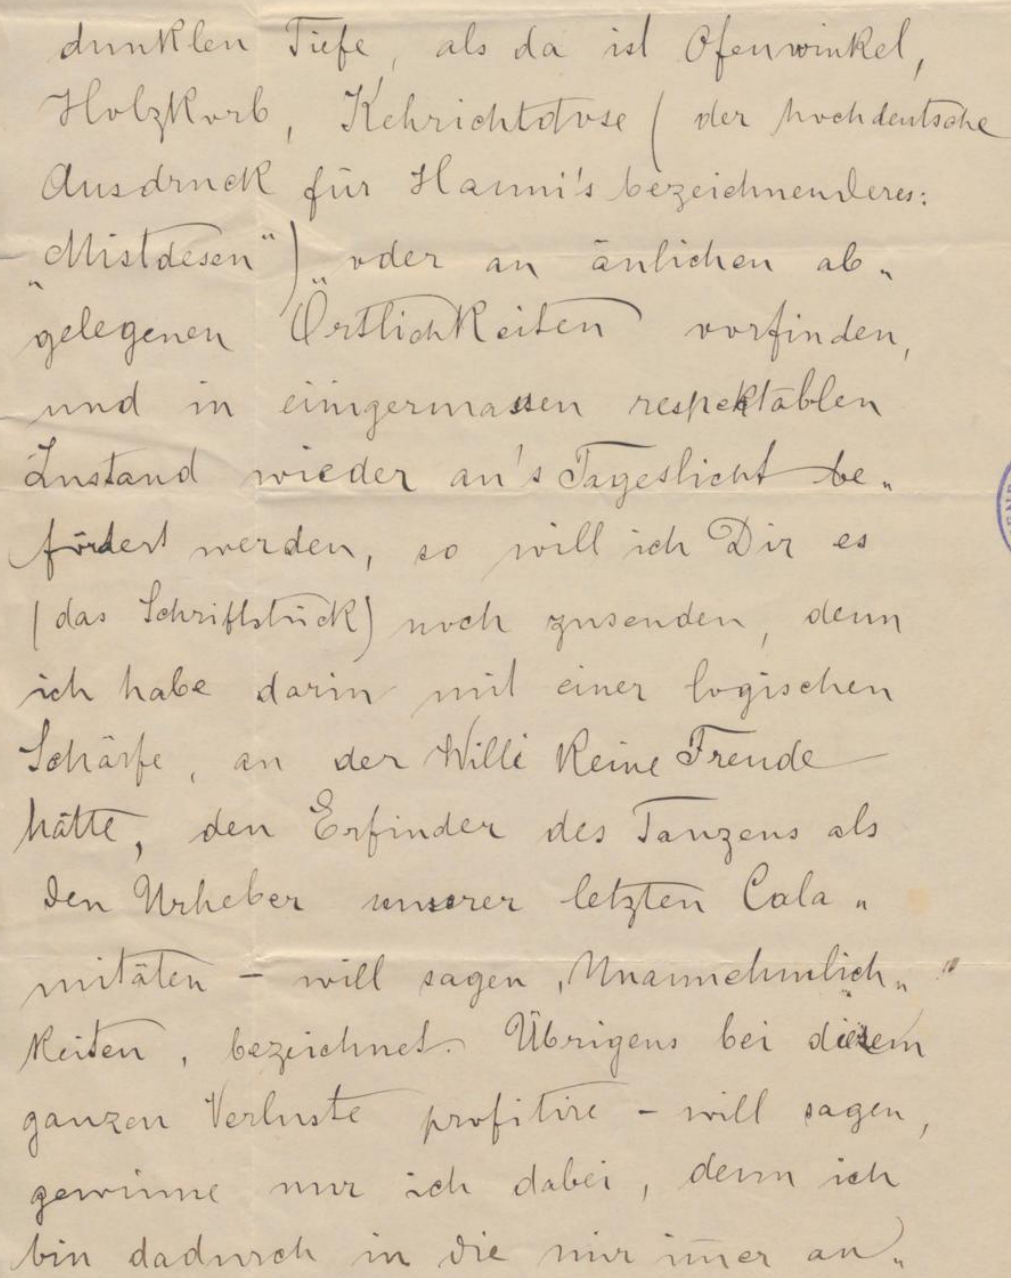 dunklen Tiefe, als da ist Ofenwinkel,
Holzkorb, Kehrichtdose (der hochdeutsche
Ausdruck für Hanni's bezeichnenderes:
„Mistdesen“) oder an änlichen ab„
gelegenen Örtlichkeiten vorfinden,
und in einigermassen respektablen
Zustand wieder an's Tageslicht be„
fördert werden, so will ich Dir es
(das Schriftstück) noch zusenden, denn
ich habe darin mit einer logischen
Schärfe, an der Willi keine Freude
hätte, den Erfinder des Tanzens als
den Urheber unserer letzten Cala„
mitäten – will sagen, Unannehmlich„
keiten, bezeichnet. Übrigens bei diesem
ganzen Verluste profitire – will sagen,
gewinne nur ich dabei, denn ich
bin dadurch in die mir im̄er an„